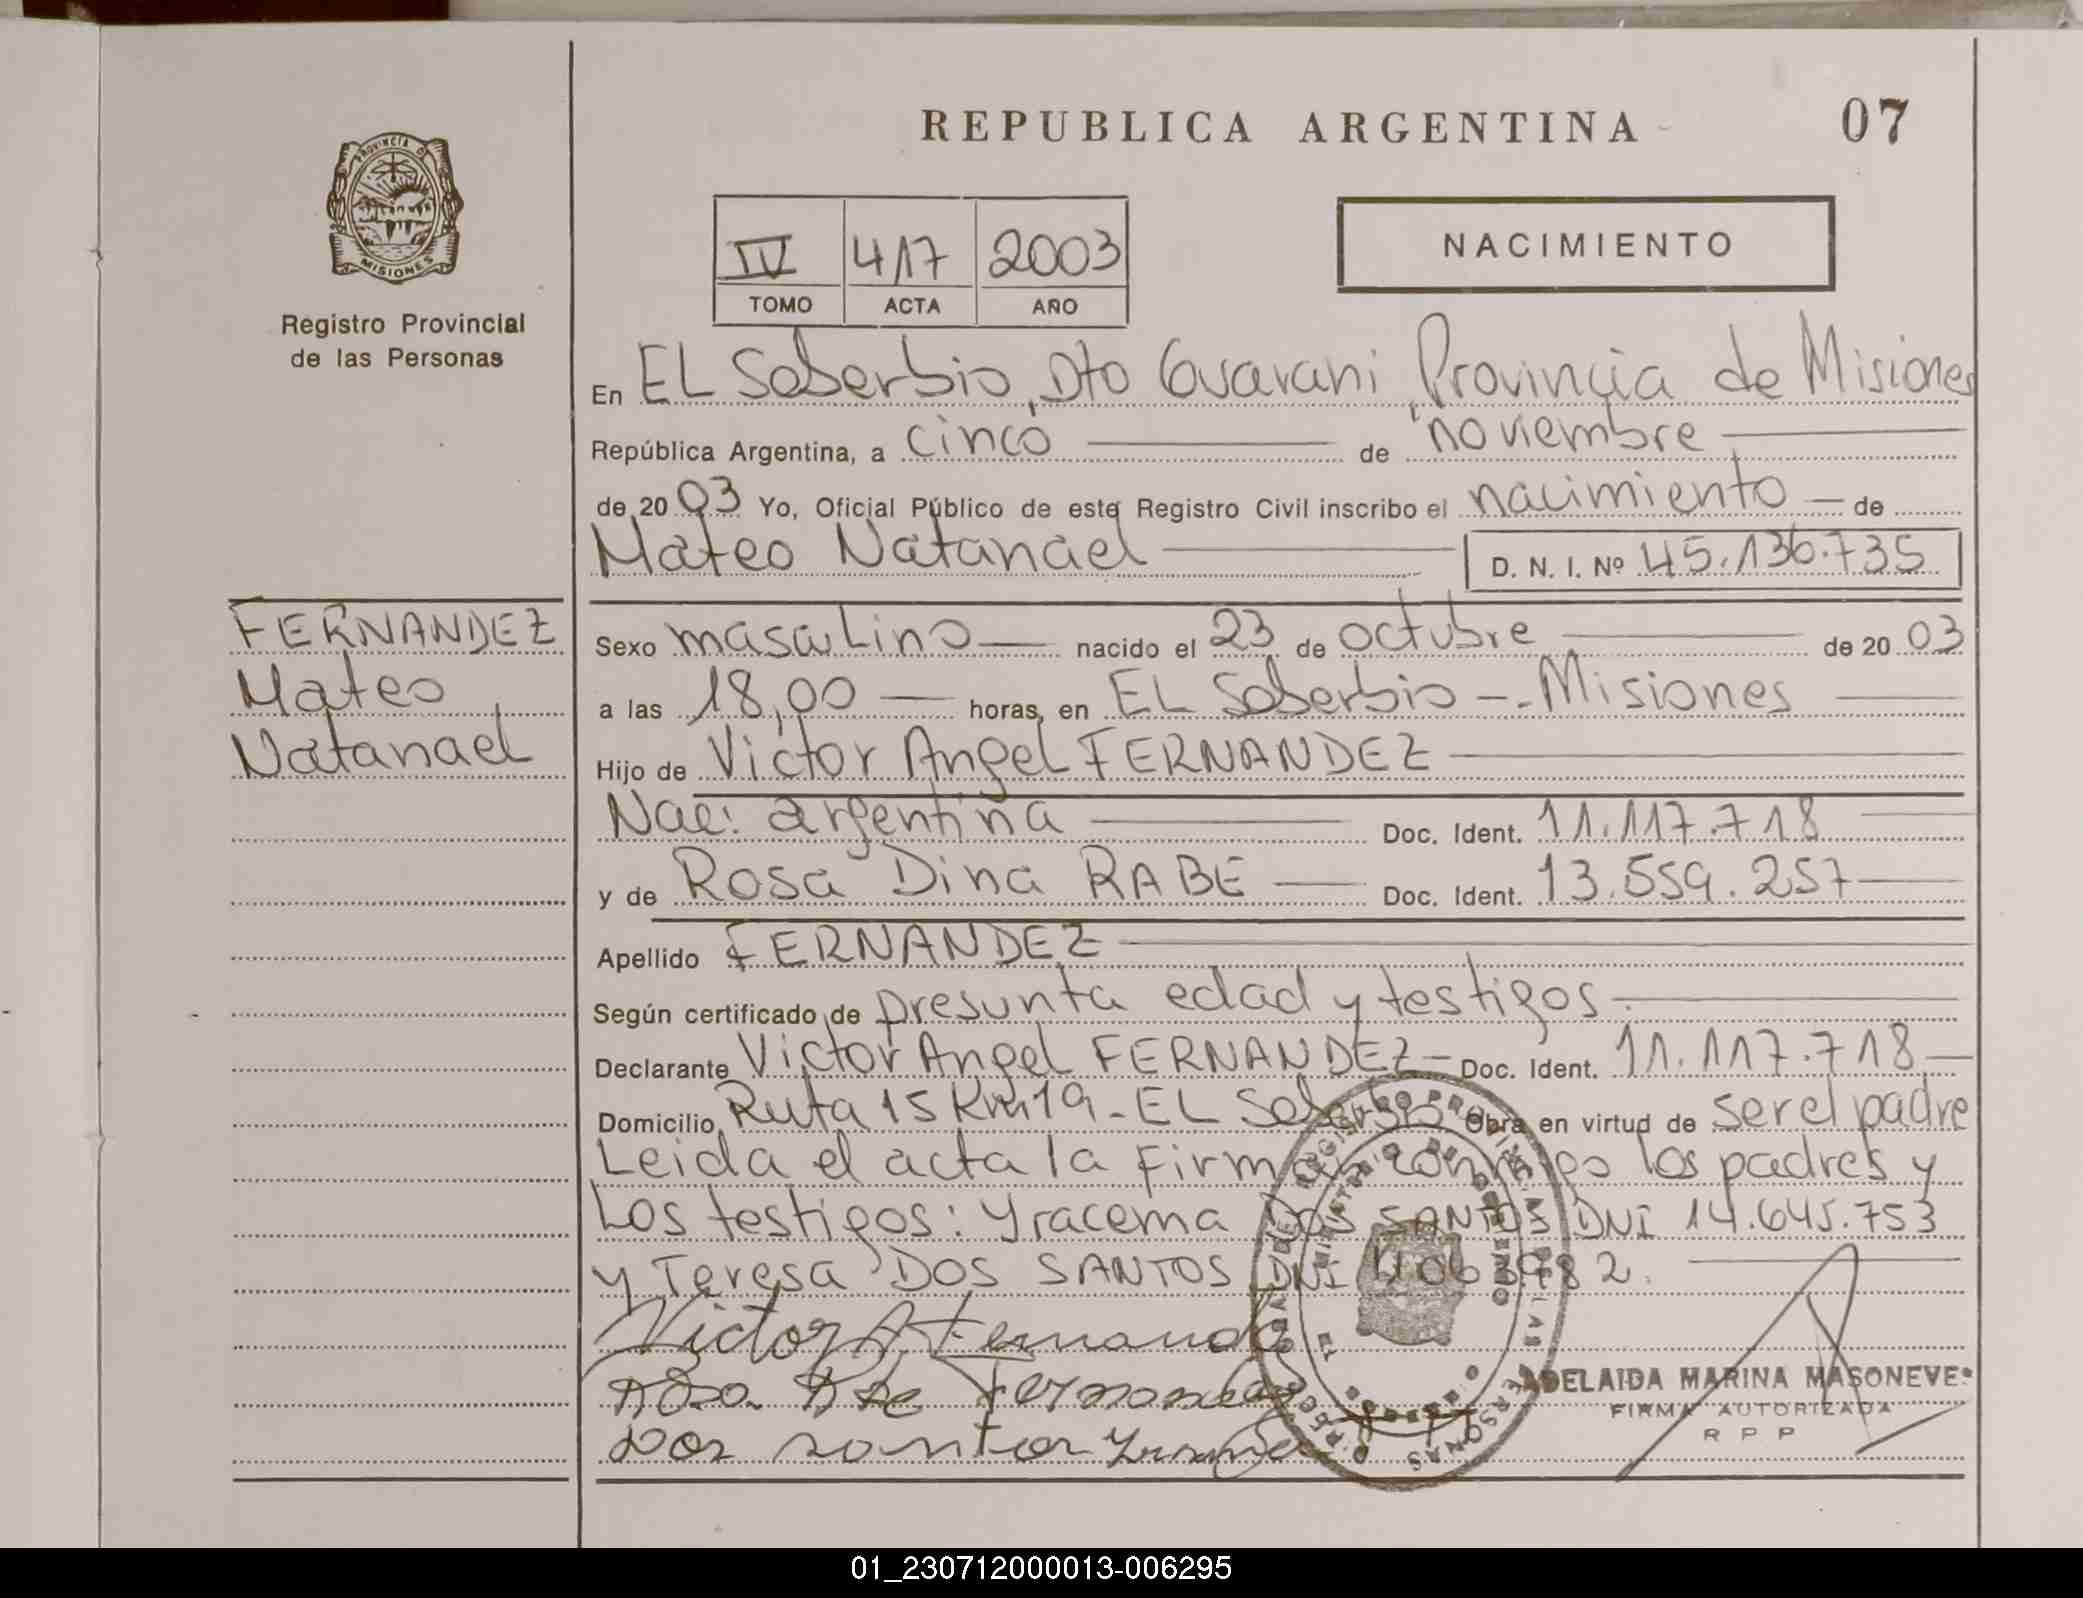 REPUBLICA ARGENTINA
07
PROVINCIA DE
MISIONES
Registro Provincial
de las Personas
IV 417 2003
TOMO ACTA AÑO
NACIMIENTO
En EL Soberbio, Dto Guarani, Provincia de Misiones
República Argentina, a cinco de noviembre
de 2003 Yo, Oficial Público de este Registro Civil inscribo el nacimiento de
Mateo Natanael D. N. I. Nº 45.136.735
FERNANDEZ
Mateo
Natanael
Sexo masculino nacido el 23 de octubre de 2003
a las 18,00 horas, en EL Soberbio - Misiones
Hijo de Victor Angel FERNANDEZ
Nac: argentina Doc. Ident. 11.117.718
y de Rosa Dina RABE Doc. Ident. 13.559.257
Apellido FERNANDEZ
Según certificado de presunta edad y testigos
Declarante Victor Angel FERNANDEZ Doc. Ident. 11.117.718
Domicilio Ruta 15 Km 19 - EL Soberbio Obra en virtud de ser el padre
Leida el acta la firman conmigo los padres y
Los testigos: Yracema DOS SANTOS DNI 14.645.753
y Teresa DOS SANTOS DNI
Victor A Fernandez
Dos santos
ADELAIDA MARINA MASONEVE
FIRMA AUTORIZADA
R P P
01_230712000013-006295